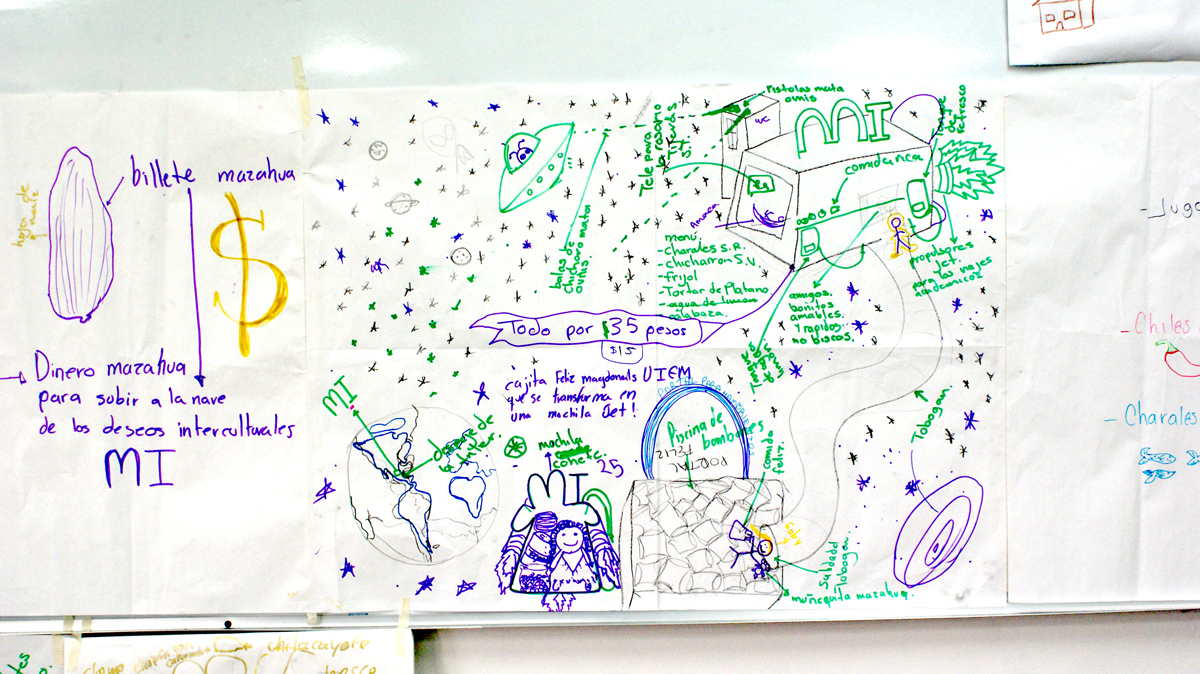 billete mazahua
hoja de
$
Dinero mazahua
para subir a la nave
de los deseos interculturales
MI
Pistolas mata
ovnis
WC
MI
de
refresco
Tele para
rosario
comidunca
Amanca
balas de
chicharo mata
ovnis.
menú:
-charales S.R.
-chicharron S.V.
-frijol
-Tortar de Platano
-agua de limon
calabaza.
propulsores
Jet.
para los viajes
academicos
amigos.
bonitos
amables.
y rapidos
no biscos.
Todo por $35 pesos
$15
cajita Feliz macdonalls UIEM
que se transforma en
una mochila Jet!
MI
despaje de
la inter.
mochila
conetc.
25
MI
Piscina de
bombones
PORTAL
FELIZ
comida
feliz.
Gaby
Tobogan.
Salida del
Tobogan.
muñequita mazahua.
-Jugo
-Chiles
-Charales
chilacayote